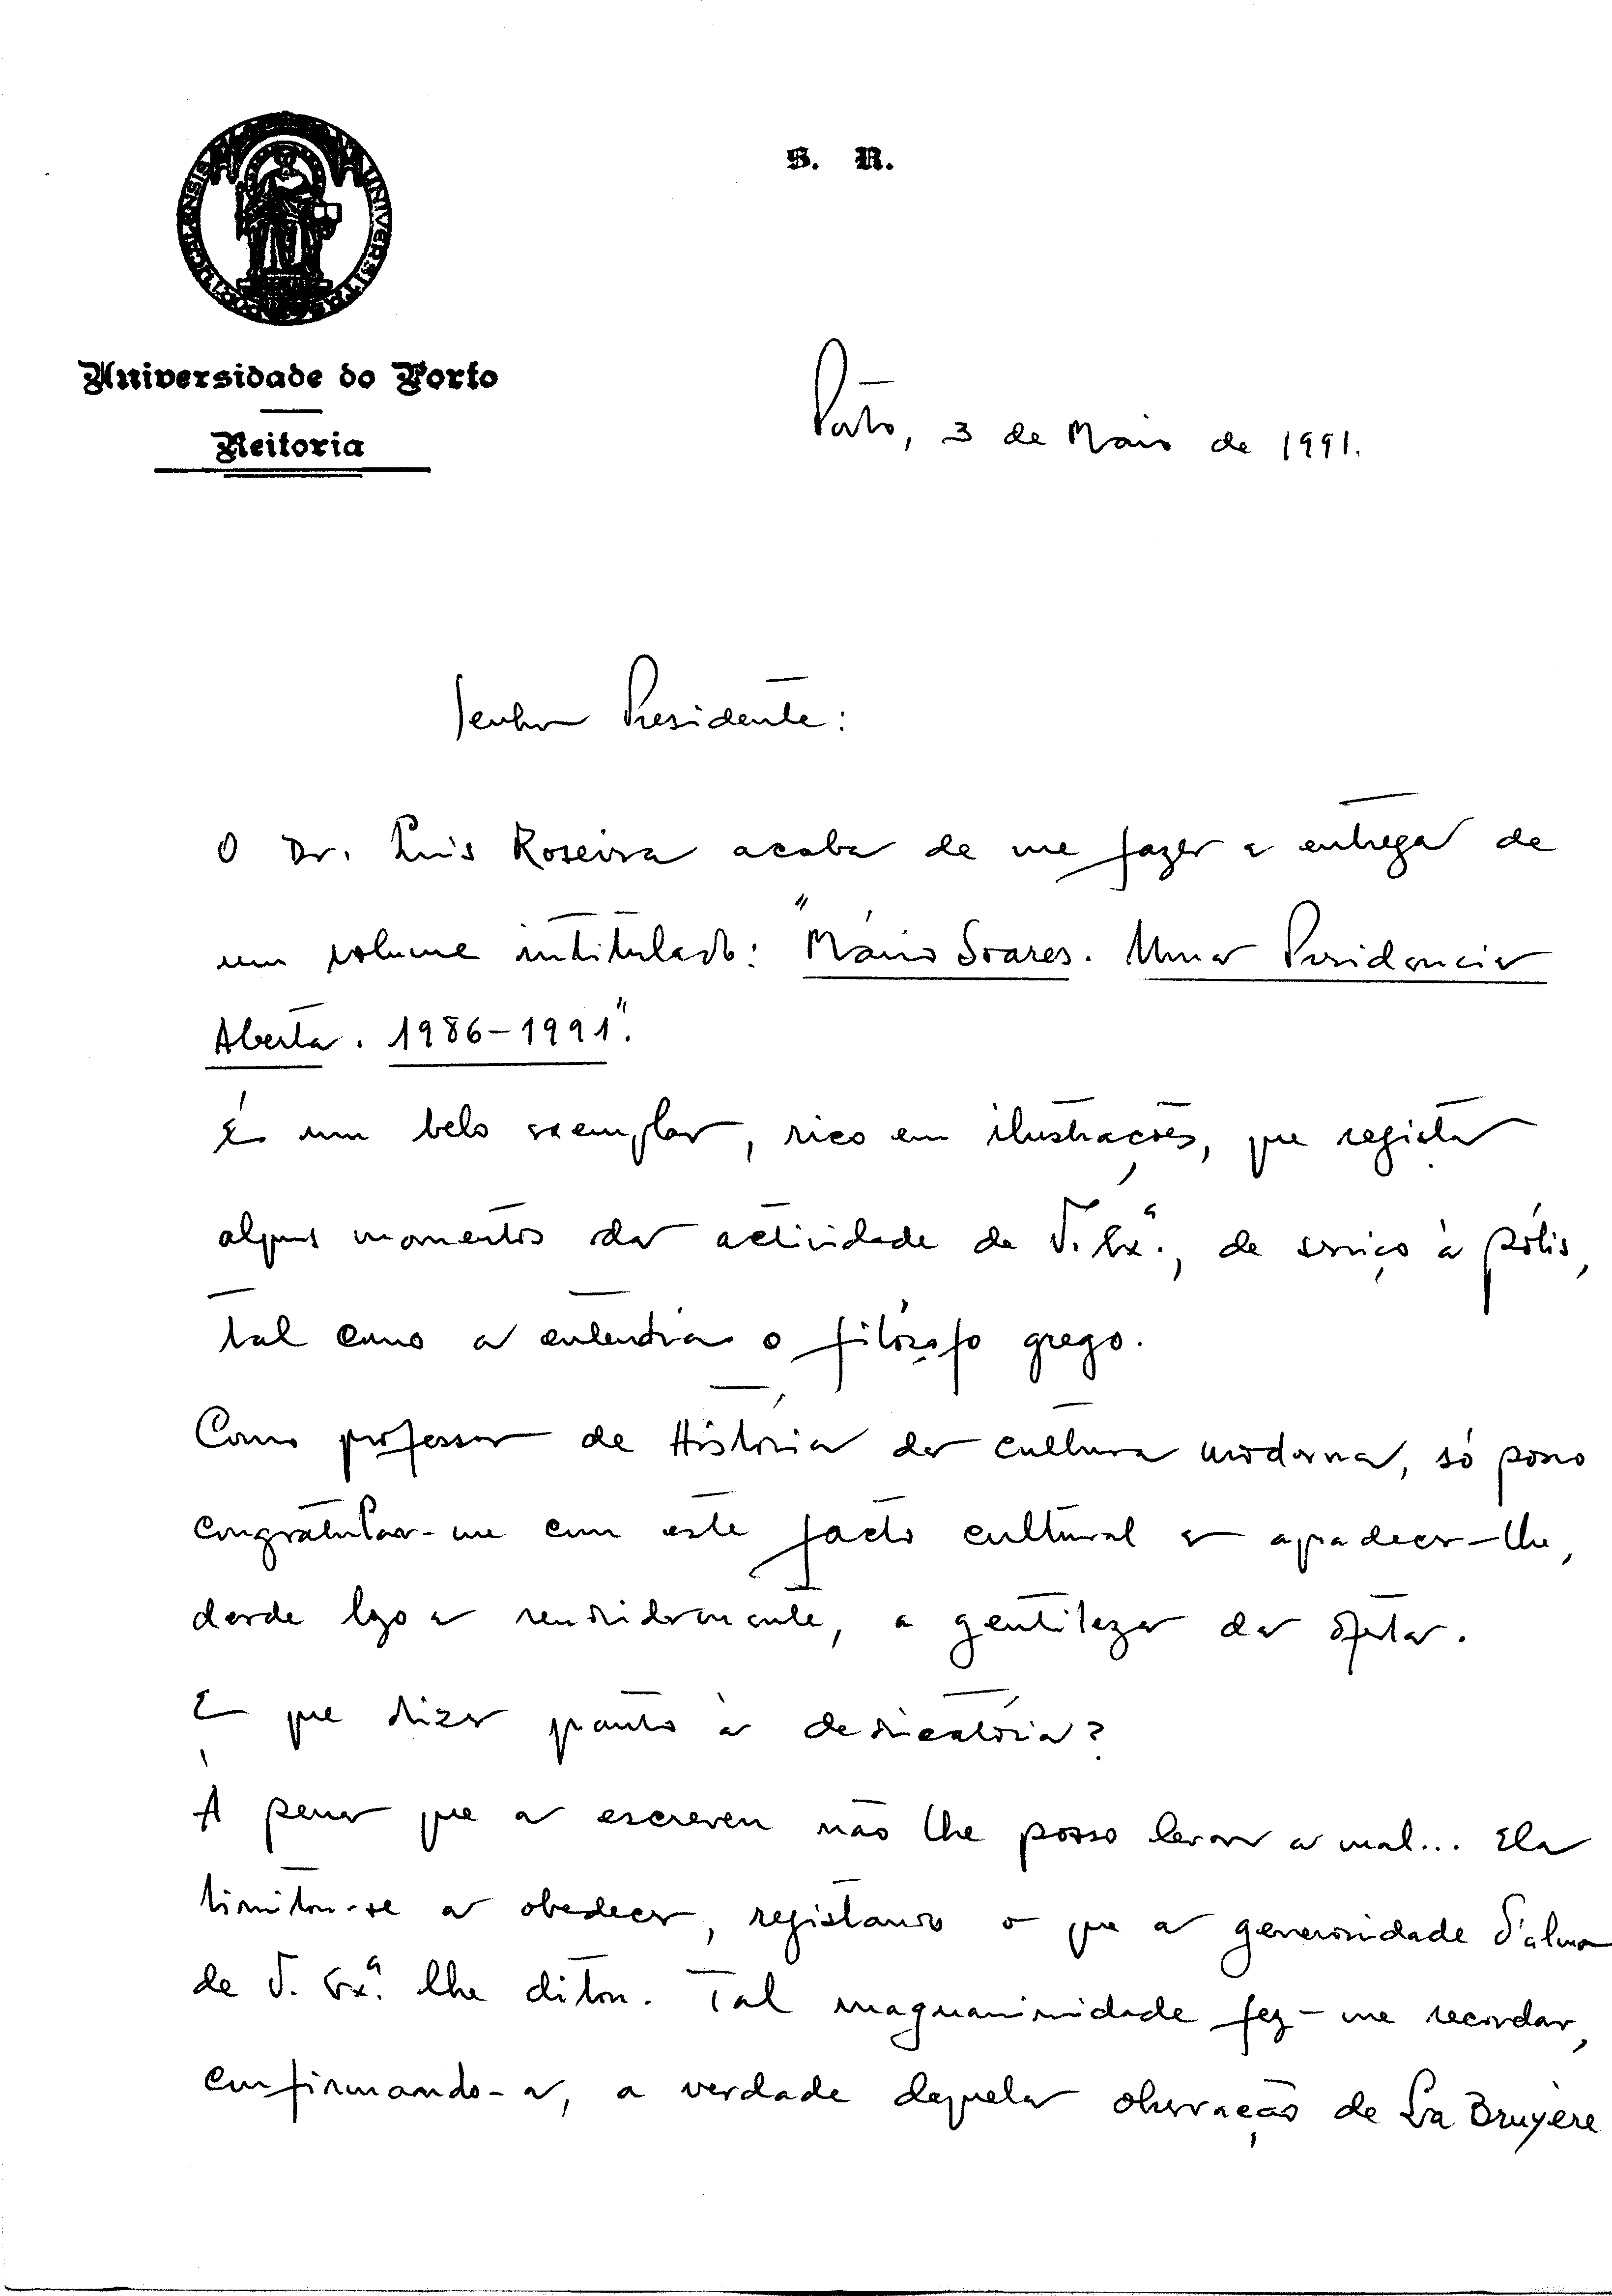 S. R.
UNIVERSITAS PORTUCALENSIS
Universidade do Porto
Reitoria
Porto, 3 de Maio de 1991.
Senhor Presidente:
O Dr. Luís Roseira acaba de me fazer a entrega de
um volume intitulado: "Mário Soares. Uma Presidencia
Aberta. 1986-1991".
É um belo exemplar, rico em ilustrações, que regista
alguns momentos da actividade de V. Exª., de serviço à pólis,
tal como a entendia o filósofo grego.
Como professor de História da cultura moderna, só posso
congratular-me com este facto cultural e agradecer-lhe,
desde logo e rendidamente, a gentileza da oferta.
E que dizer quanto à dedicatória?
À pena que a escreveu não lhe posso levar a mal... Ela
limitou-se a obedecer, registando o que a generosidade d'alma
de V. Exª. lhe ditou. Tal magnanimidade fez-me recordar,
confirmando-a, a verdade daquela observação de La Bruyère